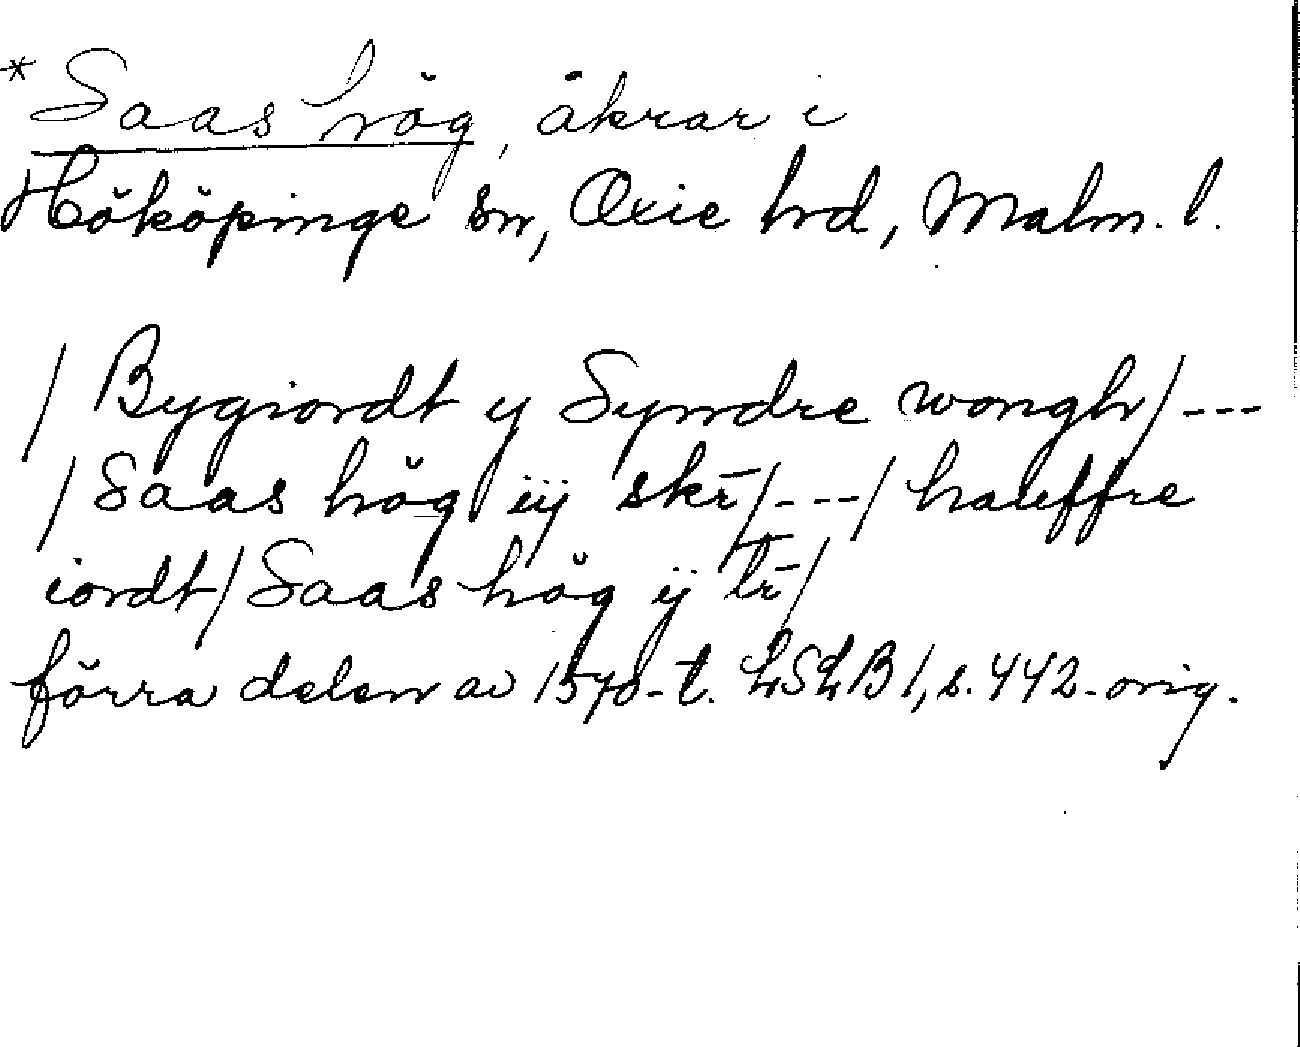 *Saas hög, åkrar i
Hököpinge sn, Oxie hd, Malm. l.
/Bygiordt y Syndre wongh/---
/Saas hög iij skr̄/---/hauffre
iordt/Saas hög ij lr̄/
förra delen av 1570-t. LSLB1, s. 442. orig.